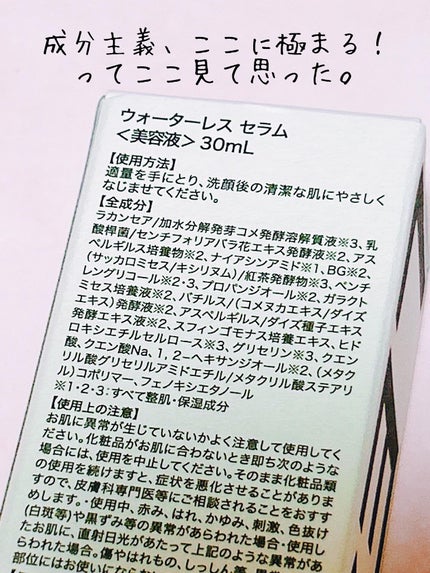 成分主義、ここに極まる！
ってここ見て思った。
ウォーターレス セラム
＜美容液＞ 30mL
【使用方法】
適量を手にとり、洗顔後の清潔な肌にやさしく
なじませてください。
【全成分】
ラカンセア/加水分解発芽コメ発酵溶解質液※3、乳
酸桿菌/センチフォリアバラ花エキス発酵液※2、アス
ペルギルス培養物※2、ナイアシンアミド※1、BG※2、
(サッカロミセス/キシリヌム)/紅茶発酵物※3、ペンチ
レングリコール※2・3、プロパンジオール※2、ガラクト
ミセス培養液※2、バチルス/(コメヌカエキス/ダイズ
エキス)発酵液※2、アスペルギルス/ダイズ種子エキス
発酵エキス液※2、スフィンゴモナス培養エキス、ヒド
ロキシエチルセルロース※3、グリセリン※3、クエン
酸、クエン酸Na、1，2－ヘキサンジオール※2、(メタク
リル酸グリセリルアミドエチル/メタクリル酸ステアリ
ル)コポリマー、フェノキシエタノール
※1・2・3：すべて整肌・保湿成分
【使用上の注意】
お肌に異常が生じていないかよく注意して使用してく
ださい。化粧品がお肌に合わないとき即ち次のような
場合には、使用を中止してください。そのまま化粧品類
の使用を続けますと、症状を悪化させることがありま
すので、皮膚科専門医等にご相談されることをおすす
めします。・使用中、赤み、はれ、かゆみ、刺激、色抜け
(白斑等)や黒ずみ等の異常があらわれた場合・使用し
たお肌に、直射日光があたって上記のような異常があ
らわれた場合。傷やはれもの、しっしん等、異常
部位にはお使いにならない